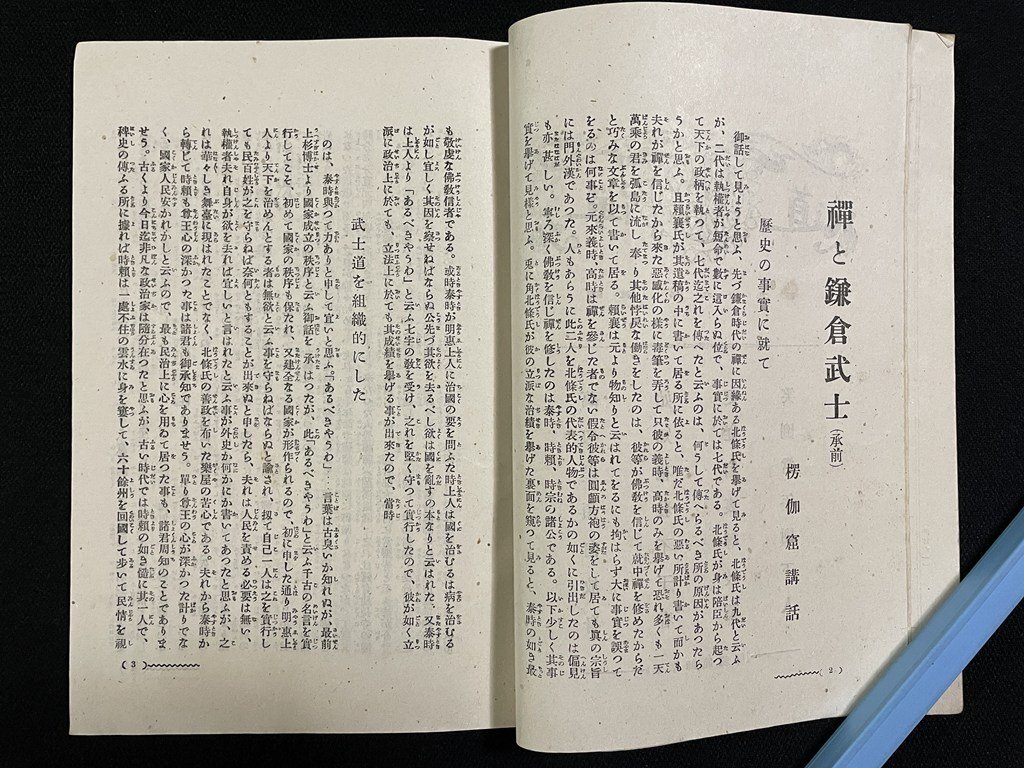 禪と鎌倉武士（承前）
楞伽窟講話
歷史の事實に就て
御話して見ようと思ふ、先づ鎌倉時代の禪に因緣ある北條氏を擧げて見ると、北條氏は九代と云ふ
が、二代は執權者が短命で數に這入らぬ位で、事實に於ては七代である。北條氏が身は陪臣から起つ
て天下の政柄を執つて、七代迄之れを傳へたと云ふのは、何うして傳へらるべき所の原因があつたら
うかと思ふ。且賴襄氏が其遺稿の中に書いて居る所に依ると、唯だ北條氏の惡い所計り書いて而かも
夫れが禪を信じたから來た惡感化の樣に毒筆を弄して只彼の義時、高時のみを擧げて恐れ多くも一天
萬乘の君を孤島に流し奉り其他悖戾な働きをしたのは、彼等が佛敎を信じて就中禪を修めたからだ
と巧みな文章を以て書いて居る。賴襄は元より物知りと云はれてをるにも拘はらず大に事實を誤つて
をるのは何事ぞ。元來義時、高時は禪を參じた者でない假令彼等は圓顱方袍の姿をして居ても眞の宗旨
には門外漢であつた。人もあらうに此二人を北條氏の代表的人物であるかの如くに引出したのは偏見
も亦甚しい。寧ろ深く佛敎を信じ禪を修したのは泰時、時賴、時宗の諸公である。以下少しく其事
實を擧げて見樣と思ふ。兎に角北條氏が彼の立派な治績を擧げた裏面を窺つて見ると、泰時の如き最
(2)
も敬虔な佛敎信者である。或時泰時が明惠上人に治國の要を問ふた時上人は國を治むるは病を治むる
が如し宜しく其因を察せねばならぬ公先づ其欲を去るべし欲は國を亂すの本なりと云はれた、又泰時
は上人より「あるべきやうわ」と云ふ七字の敎を受け、之れを堅く守つて實行したので、彼が如く立
派に政治上に於ても、立法上に於ても其成績を擧げる事が出來たので、當時
武士道を組織的にした
のは、泰時與つて力ありと申して宜いと思ふ。「あるべきやうわ」…言葉は古臭いか知れぬが、最前
上杉博士より國家成立の秩序と云ふ御話を承はつたが、此「あるべきやうわ」と云ふ千古の名言を實
行してこそ、初めて國家の秩序も保たれ、又建全なる國家が形作られるので、初に申した通り明惠上
人より天下を治めんとする者は無欲と云ふ事を守らねばならぬと諭され、扨て自己一人は之を實行し
ても民百姓が之を守らねば奈何ともすることが出來ぬと申したら、夫れは人民を責める必要は無い、
執權者夫れ自身が欲を去れば宜しいと言はれたと云ふ事が外史か何かに書いてあつたと思ふが、之
れは華々しき舞臺に現はれたことでなく、北條氏の善政を布いた樂屋の苦心である。夫れから泰時か
ら轉じて時賴も尊王心の深かつた事は諸君も御承知でありませう。單り尊王の心が深かつた計りでな
く、國家人民安かれかしと云ふので、最も民治上に心を用ねて居つた事も、諸君周知のことでありま
せう。古くより今日迄非凡な政治家は隨分在つたと思ふが、古い時代では時賴の如き慥に其一人で、
稗史の傳ふる所に據れば時賴は一處不住の雲水に身を窶して、六十餘州を回國して歩いて民情を視
(3)